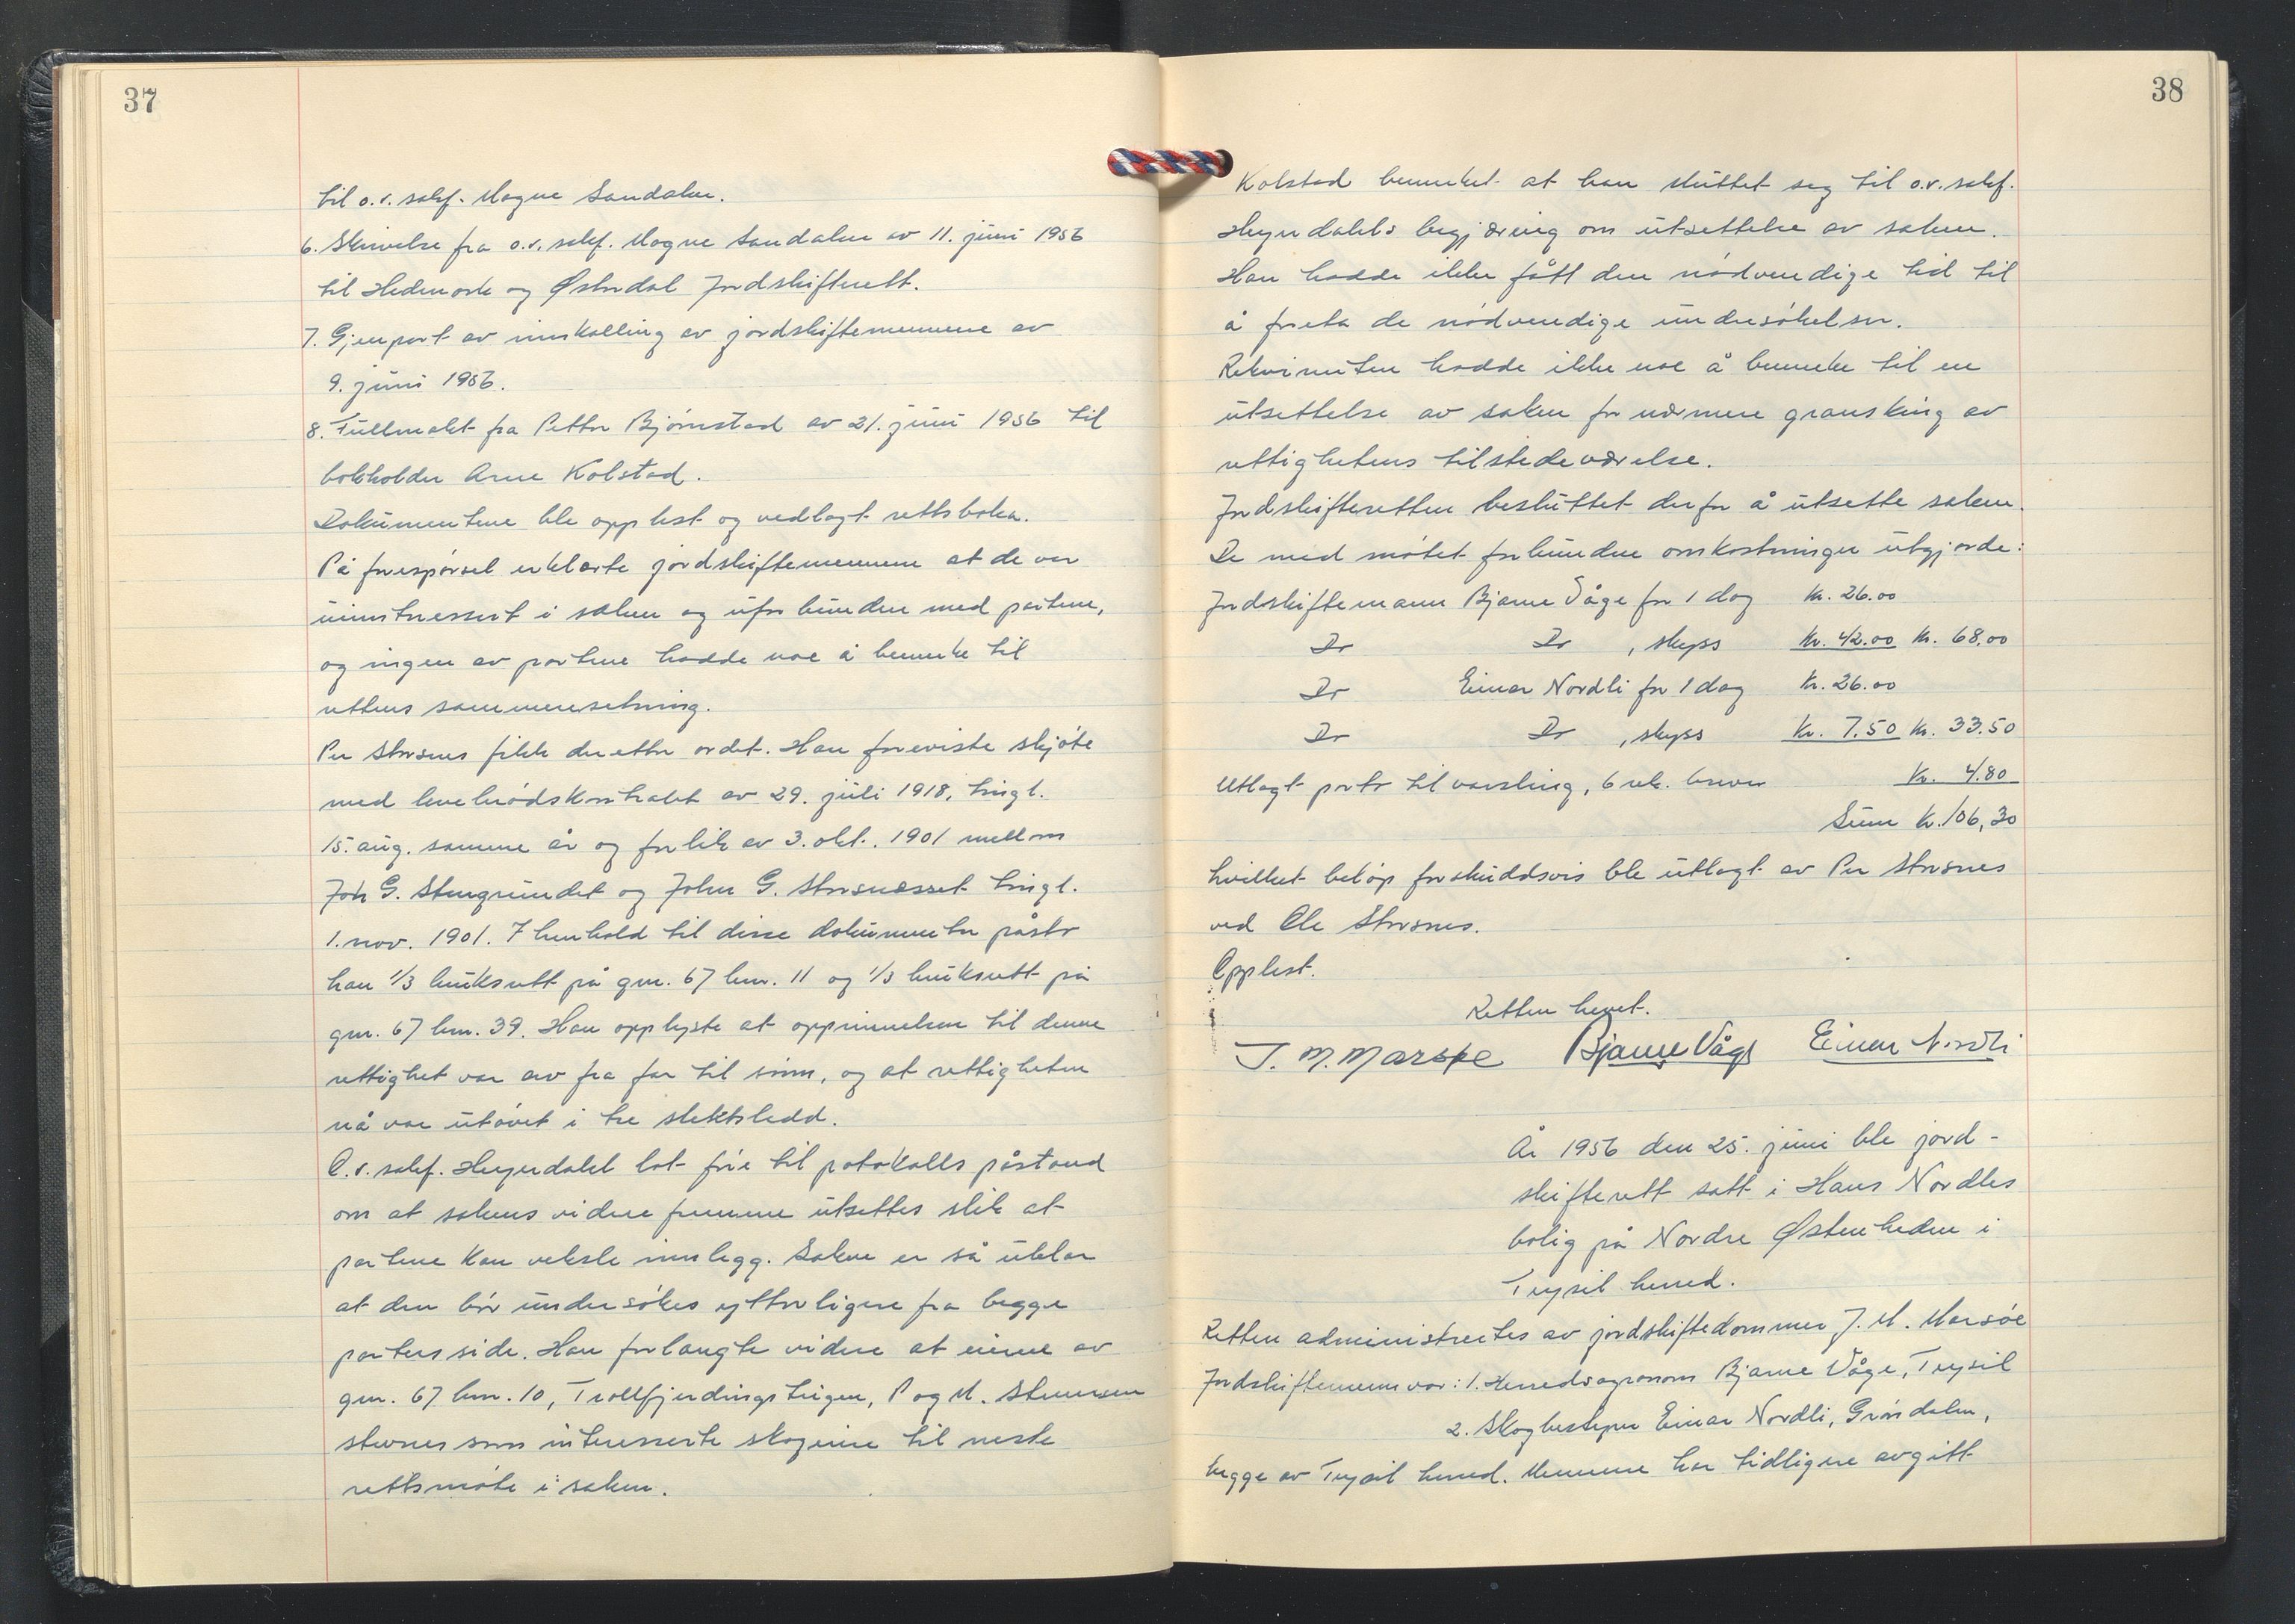 37
til o.r. sakf. Mogne Sandalen.
6. Skrivelse fra o.r. sakf. Mogne Sandalen av 11. juni 1956
til Hedmark og Østerdal Jordskifterett.
7. Gjenpart av innkalling av jordskiftemennene av
9. juni 1956.
8. Fullmakt fra Petter Bjørnstad av 21. juni 1956 til
bokholder Arne Kolstad.
Dokumentene ble opplest og vedlagt rettsboka.
På forespørsel erklærte jordskiftemennene at de var
uinteressert i saken og uforbundne med partene,
og ingen av partene hadde noe å bemerke til
rettens sammensetning.
Per Storsnes fikk deretter ordet. Han foreviste skjøte
med levebrødskontrakt av 29. juli 1918, tingl.
15. aug. samme år og forlik av 3. okt. 1901 mellom
Joh G. Stengrundet og John G. Storsnæsset tingl.
1. nov. 1901. I henhold til disse dokumenter påstår
han 1/3 bruksrett på gnr. 67 bnr. 11 og 1/3 bruksrett på
gnr. 67 bnr. 39. Han opplyste at opprinnelsen til denne
rettighet var arv fra far til sønn, og at rettigheten
nå var utøvet i tre slektsledd.
O.r. sakf. Heyerdahl lot føre til protokolls påstand
om at sakens videre fremme utsettes slik at
partene kan veksle innlegg. Saken er så uklar
at den bør undersøkes ytterligere fra begge
parters side. Han forlangte videre at eierne av
gnr. 67 bnr. 10, Trollfjerdingstrigen, P og M.
stevnes som interesserte skogeiere til neste
rettsmøte i saken.
38
Kolstad bemerket at han sluttet seg til o.r. sakf.
Heyerdahls begjæring om utsettelse av saken.
Han hadde ikke fått den nødvendige tid til
å foreta de nødvendige undersøkelser.
Rekvirenten hadde ikke noe å bemerke til en
utsettelse av saken for nærmere gransking av
rettighetens tilstedeværelse.
Jordskifteretten besluttet derfor å utsette saken.
De med møtet forbundne omkostninger utgjorde:
Jordskiftemann Bjarne Våge for 1 dag Kr. 26.00
Do Do , skyss Kr. 42.00 Kr. 68.00
Do Einar Nordli for 1 dag Kr. 26.00
Do Do , skyss Kr. 7.50 Kr. 33.50
Utlagt porto til varsling, 6 rek. brever Kr. 4.80
Sum Kr. 106,30
hvilket beløp forskuddsvis ble utlagt av Per Storsnes
ved Ole Storsnes.
Opplest.
Retten hevet.
J. M. Marsøe Bjarne Våge Einar Nordli
År 1956 den 25. juni ble jord-
skifterett satt i Hans Nordlis
bolig på Nordre Østerheden i
Trysil herred.
Retten administreres av jordskiftedommer J. M. Marsøe
Jordskiftemenn var: 1. Herredsagronom Bjarne Våge, Trysil
2. Skogbestyrer Einar Nordli, Grøndalen,
begge av Trysil herred. Mennene har tidligere avgitt